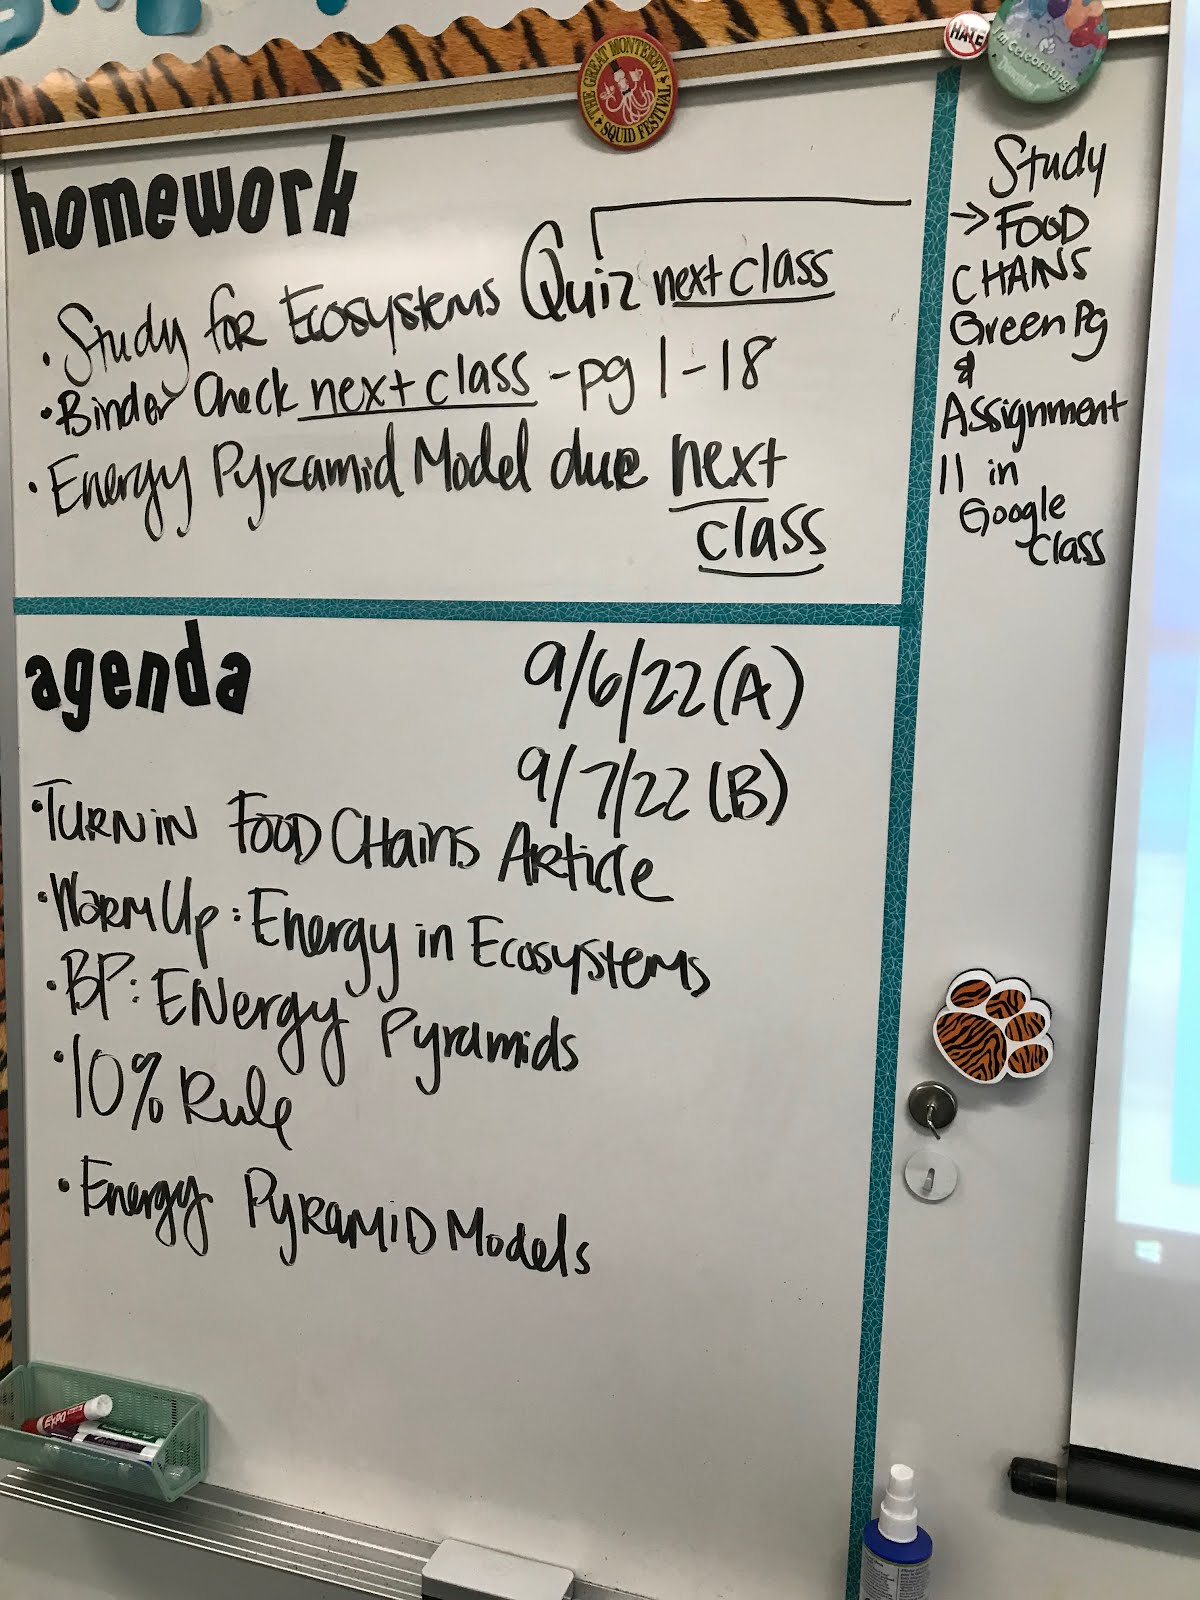 THE GREAT MONTEREY
SQUID FESTIVAL
HATE
I'm Celebrating!
homework
• Study for Ecosystems Quiz next class
• Binder Check next class - pg 1-18
• Energy Pyramid Model due next
class
Study
→ FOOD
CHAINS
Green Pg
&
Assignment
11 in
Google
Class
agenda
9/6/22 (A)
9/7/22 (B)
• Turn in Food Chains Article
• Warm Up: Energy in Ecosystems
• BP: Energy Pyramids
• 10% Rule
• Energy Pyramid Models
EXPO